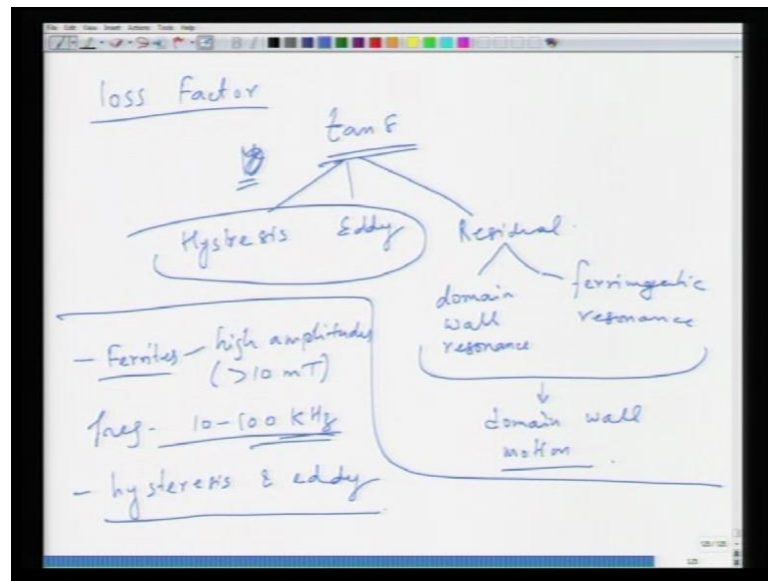 File Edit View Insert Actions Tools Help
loss Factor
tan δ
Hysteresis Eddy Residual.
domain wall resonance
ferrimgetic resonance
domain wall motion.
- Ferrites - high amplitudes
(>10 mT)
freq - 10-100 KHz
- hysteresis & eddy
125/125
125